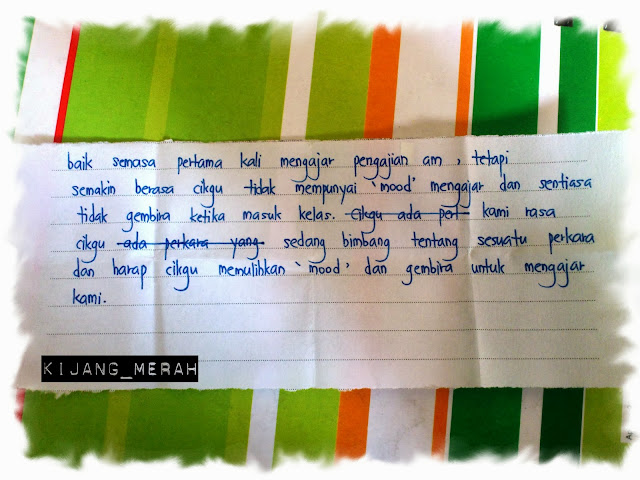 baik semasa pertama kali mengajar pengajian am, tetapi
semakin berasa cikgu tidak mempunyai 'mood' mengajar dan sentiasa
tidak gembira ketika masuk kelas. cikgu ada per kami rasa
cikgu ada perkara yang sedang bimbang tentang sesuatu perkara
dan harap cikgu memulihkan 'mood' dan gembira untuk mengajar
kami.
KIJANG_MERAH